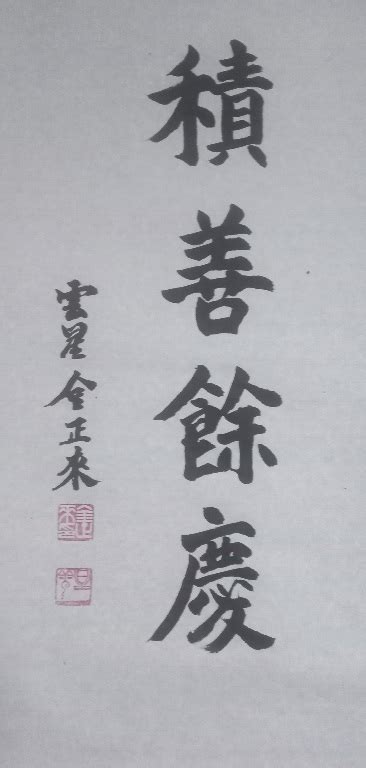 積善餘慶
雲星金正來